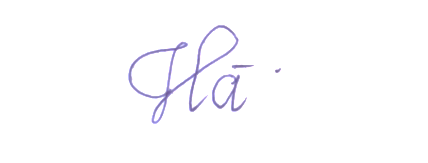 Hā.